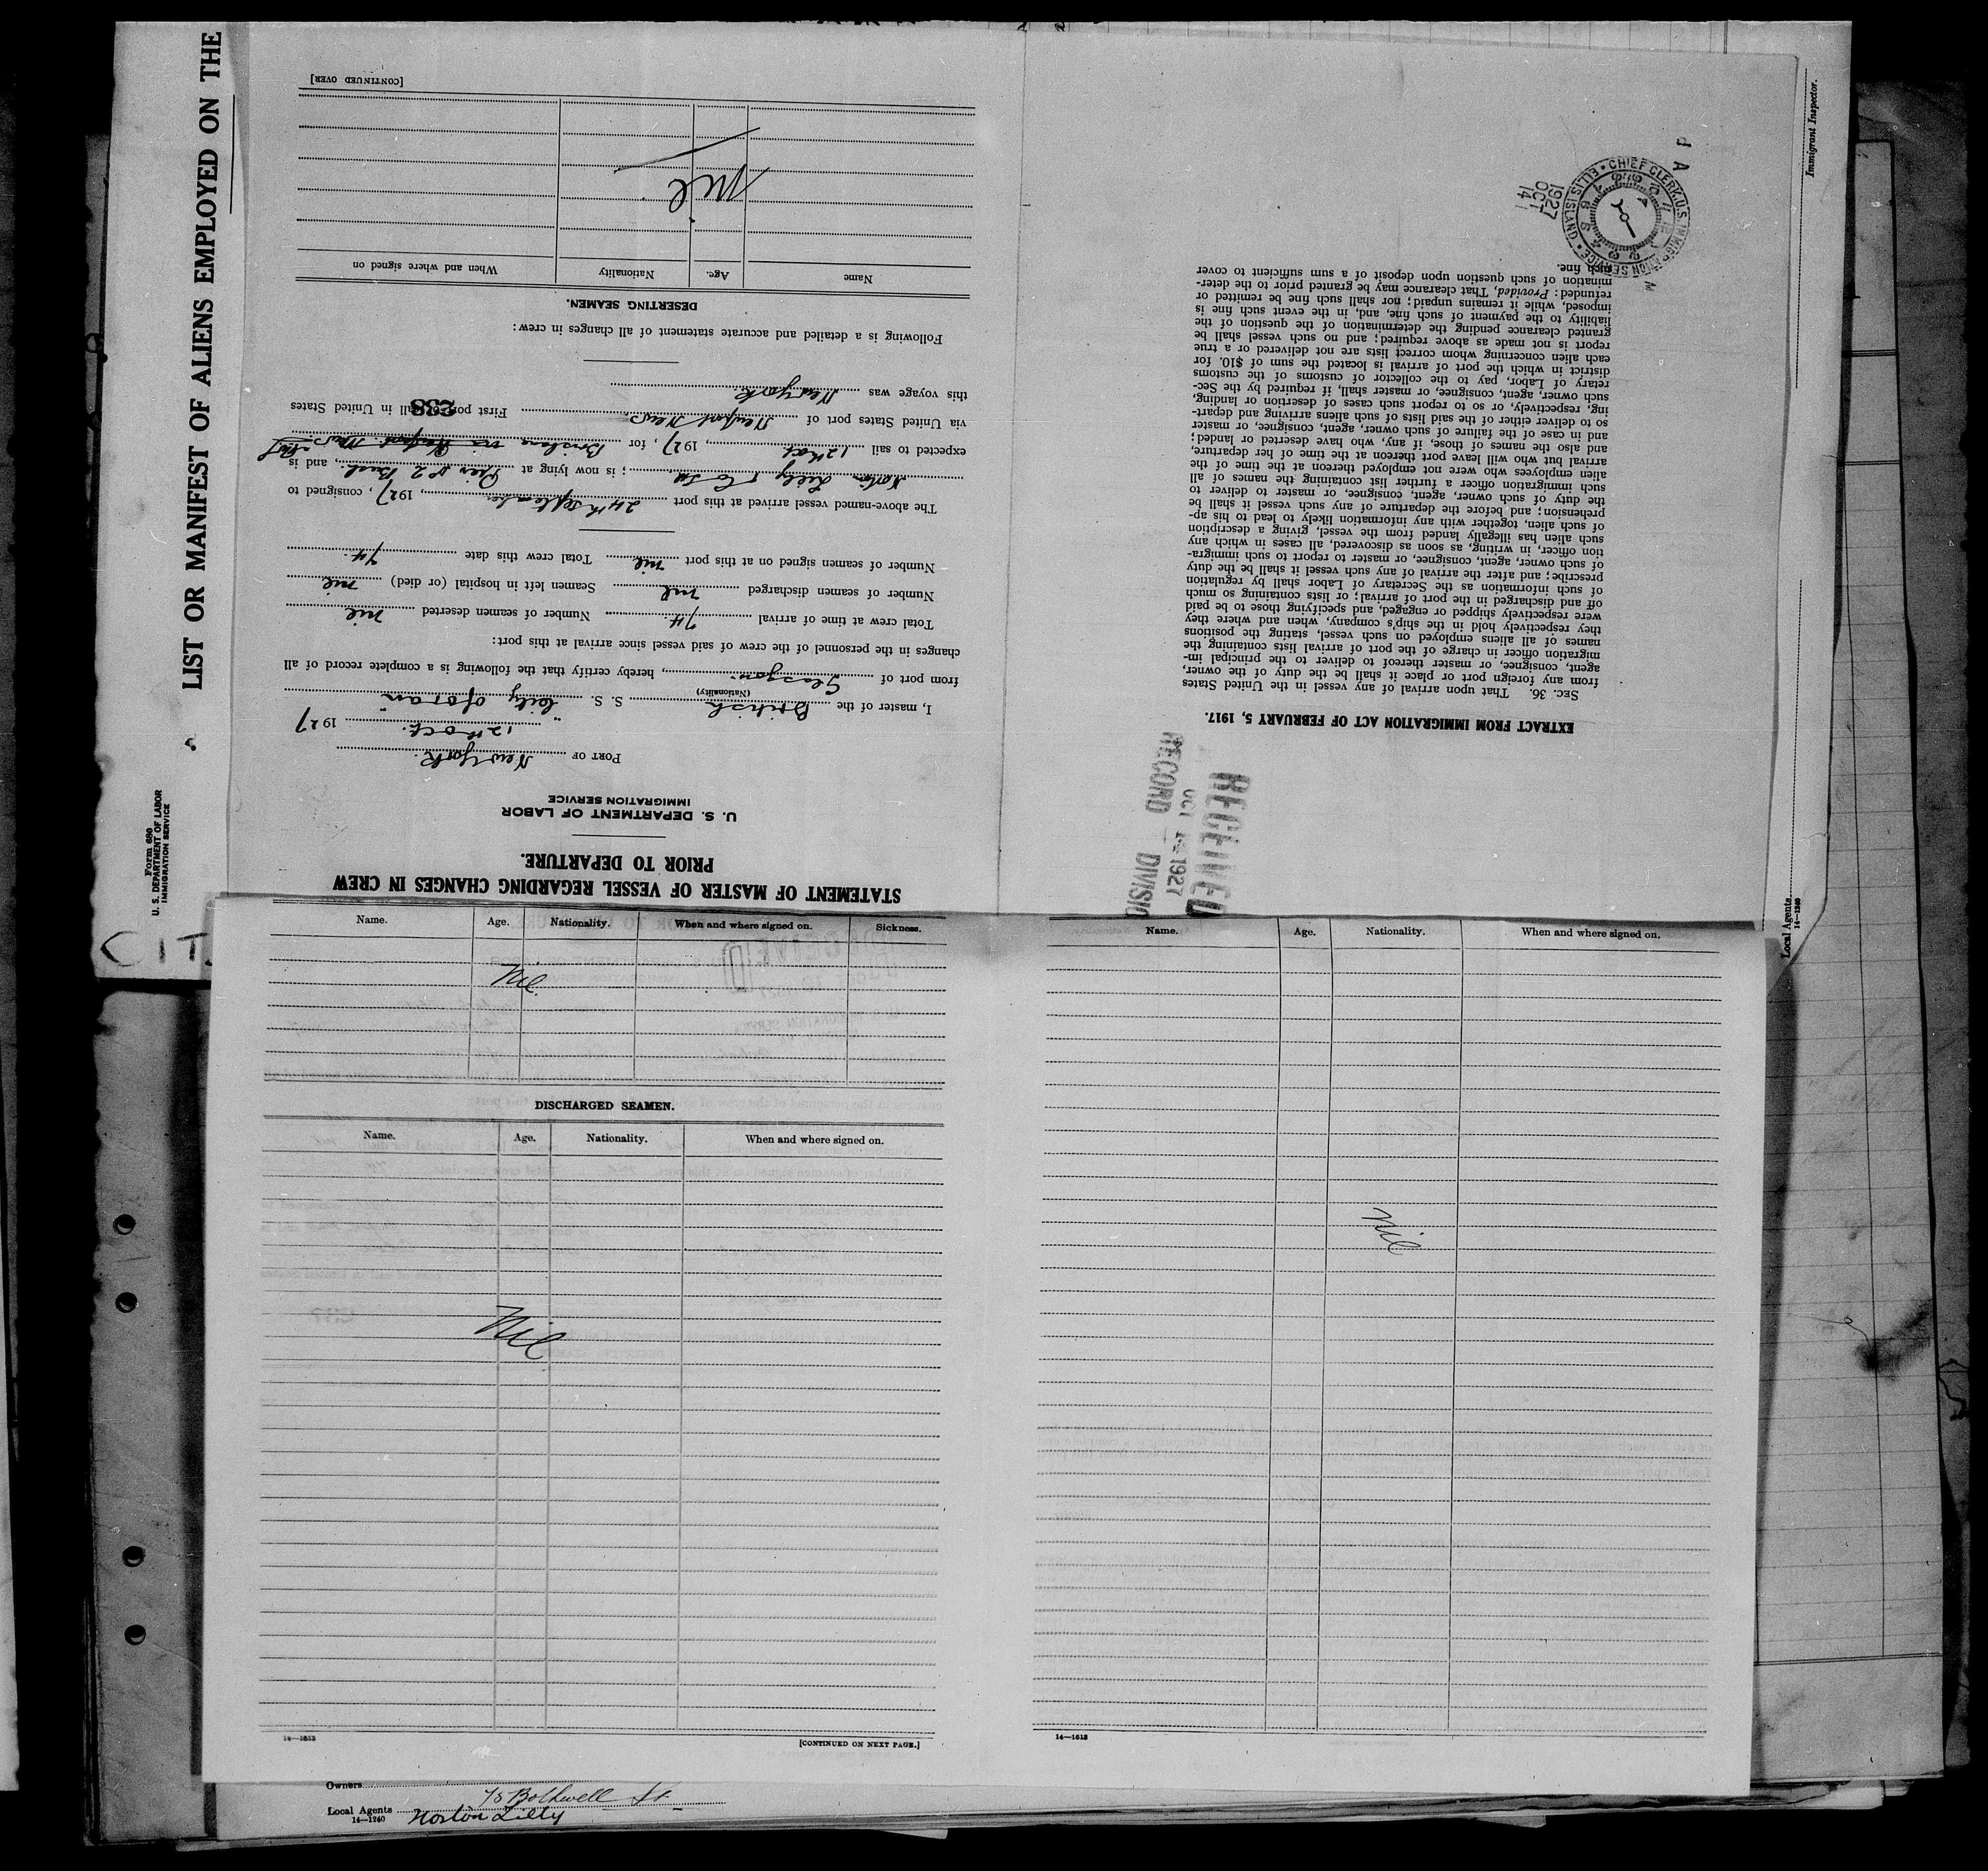 LIST OR MANIFEST OF ALIENS EMPLOYED ON THE
Form 680
U. S. DEPARTMENT OF LABOR
IMMIGRATION SERVICE
STATEMENT OF MASTER OF VESSEL REGARDING CHANGES IN CREW
PRIOR TO DEPARTURE.
U. S. DEPARTMENT OF LABOR
IMMIGRATION SERVICE
PORT OF New York.
12th Oct. 1927
I, master of the British S. S. "City of Oran"
(Nationality)
from port of Glasgow, hereby certify that the following is a complete record of all
changes in the personnel of the crew of said vessel since arrival at this port:
Total crew at time of arrival 74. Number of seamen deserted nil
Number of seamen discharged nil Seamen left in hospital (or died) nil
Number of seamen signed on at this port nil Total crew this date 74.
The above-named vessel arrived at this port 24th September, 1927, consigned to
Norton Lilly & Co; is now lying at Pier No 2 Bush., and is
expected to sail 12th Oct., 1927, for Brisbane via Newport News
via United States port of Newport News. First port of call in United States
238
this voyage was New York.
Following is a detailed and accurate statement of all changes in crew:
DESERTING SEAMEN.
Name Age. Nationality When and where signed on
Nil
[CONTINUED OVER]
RECEIVED
OCT 14 1927
RECORD DIVISIO
EXTRACT FROM IMMIGRATION ACT OF FEBRUARY 5, 1917.
SEC. 36. That upon arrival of any vessel in the United States
from any foreign port or place it shall be the duty of the owner,
agent, consignee, or master thereof to deliver to the principal im-
migration officer in charge of the port of arrival lists containing the
names of all aliens employed on such vessel, stating the positions
they respectively hold in the ship's company, when and where they
were respectively shipped or engaged, and specifying those to be paid
off and discharged in the port of arrival; or lists containing so much
of such information as the Secretary of Labor shall by regulation
prescribe; and after the arrival of any such vessel it shall be the duty
of such owner, agent, consignee, or master to report to such immigra-
tion officer, in writing, as soon as discovered, all cases in which any
such alien has illegally landed from the vessel, giving a description
of such alien, together with any information likely to lead to his ap-
prehension; and before the departure of any such vessel it shall be
the duty of such owner, agent, consignee, or master to deliver to
such immigration officer a further list containing the names of all
alien employees who were not employed thereon at the time of the
arrival but who will leave port thereon at the time of her departure,
and also the names of those, if any, who have deserted or landed;
and in case of the failure of such owner, agent, consignee, or master
so to deliver either of the said lists of such aliens arriving and depart-
ing, respectively, or so to report such cases of desertion or landing,
such owner, agent, consignee, or master shall, if required by the Sec-
retary of Labor, pay to the collector of customs of the customs
district in which the port of arrival is located the sum of $10. for
each alien concerning whom correct lists are not delivered or a true
report is not made as above required; and no such vessel shall be
granted clearance pending the determination of the question of the
liability to the payment of such fine, and, in the event such fine is
imposed, while it remains unpaid; nor shall such fine be remitted or
refunded: Provided, That clearance may be granted prior to the deter-
mination of such question upon deposit of a sum sufficient to cover
such fine.
CHIEF CLERK. U.S. IMMIGRATION SERVICE • ELLIS ISLAND •
1927
OCT
14
Immigrant Inspector.
Local Agents
14—1240
Name. Age. Nationality. When and where signed on. Sickness.
Nil.
DISCHARGED SEAMEN.
Name. Age. Nationality. When and where signed on.
Nil
14—1613
[CONTINUED ON NEXT PAGE.]
Name. Age. Nationality. When and where signed on.
Nil
14—1613
Owners
75 Bothwell St.
Local Agents Norton Lilly
14—1240